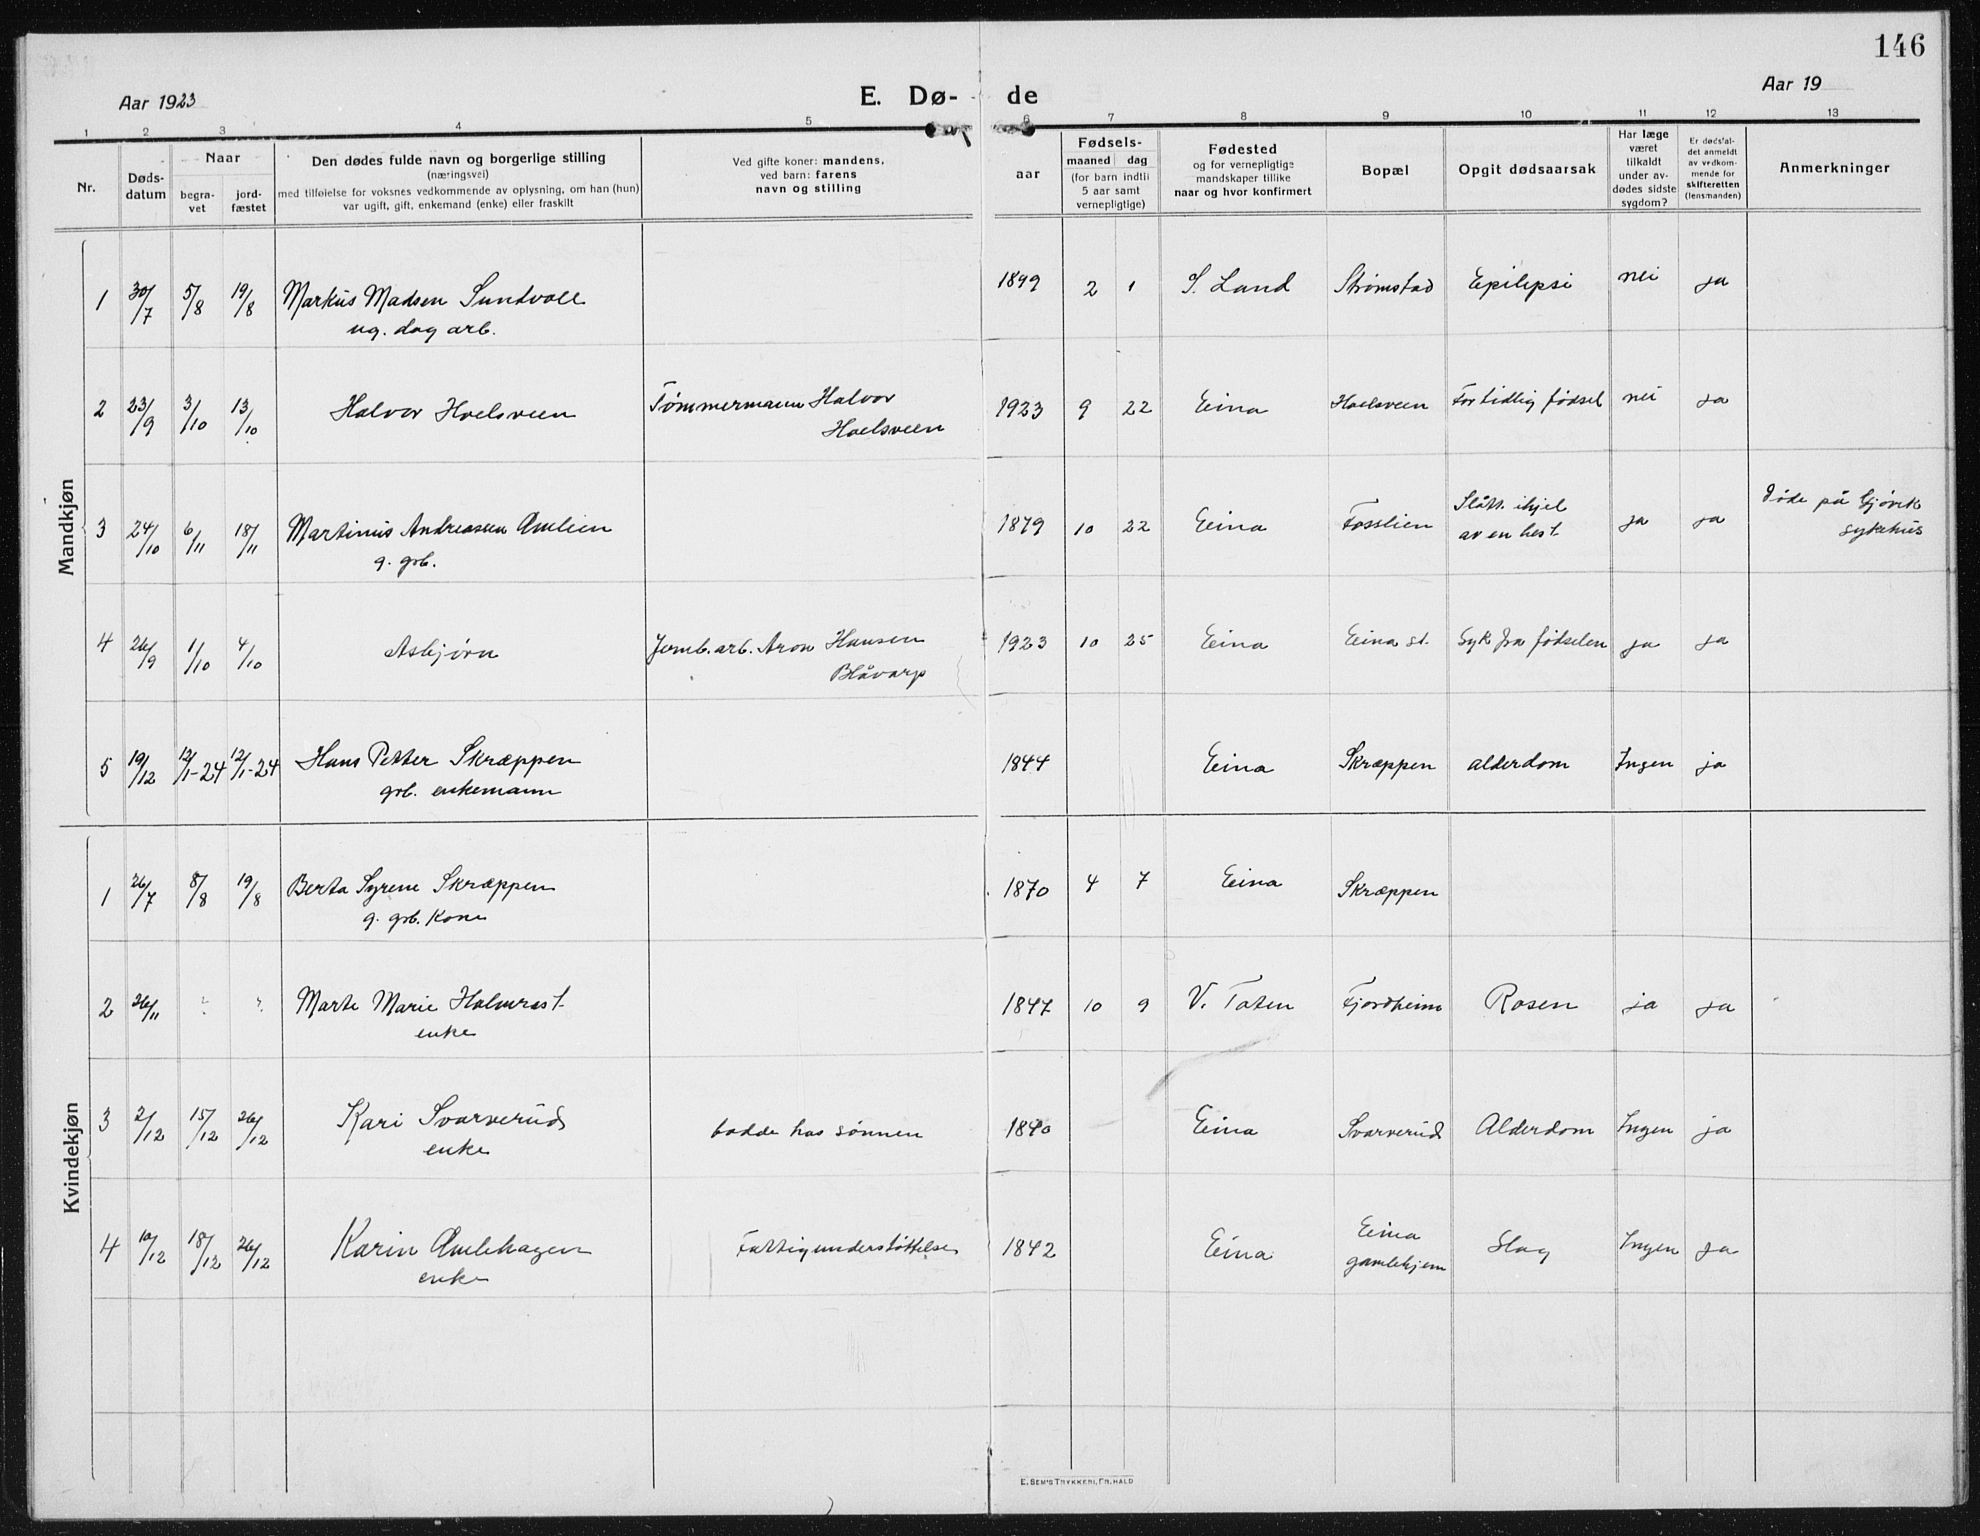 146
Aar 1923
E. Dø- de
Aar 19
1 2 3 4 5 6 7 8 9 10 11 12 13
Nr.
Døds-
datum
Naar
begra-
vet
jord-
fæstet
Den dødes fulde navn og borgerlige stilling
(næringsvei)
med tilføielse for voksnes vedkommende av oplysning, om han (hun)
var ugift, gift, enkemand (enke) eller fraskilt
Ved gifte koner: mandens,
ved barn: farens
navn og stilling
aar
Fødsels-
maaned dag
(for barn indtil
5 aar samt
vernepligtige)
Fødested
og for vernepligtige
mandskaper tillike
naar og hvor konfirmert
Bopæl
Opgit dødsaarsak
Har læge
været
tilkaldt
under av-
dødes sidste
sygdom?
Er dødsfal-
det anmeldt
av vedkom-
mende for
skifteretten
(lensmanden)
Anmerkninger
Mandkjøn
1 30/7 5/8 19/8 Markus Madsen Sundvoll 1899 2 1 S. Land Strømstad Epilepsi nei ja
ug. dag arb.
2 23/9 3/10 13/10 Halvor Hoelsveen Tømmermann Halvor 1923 9 22 Eina Hoelsveen For tidlig fødsel nei ja
Hoelsveen
3 24/10 6/11 18/11 Martinius Andreassen Amlien 1879 10 22 Eina Fosslien Slått ihjel ja ja Døde på Gjøvik
g. grb. av en hest. sykehus
4 26/9 1/10 4/10 Asbjørn Jernb. arb. Aron Hansen 1923 10 25 Eina Eina st. Syk fra fødselen ja ja
Blåvarp
5 19/12 12/1-24 12/1-24 Hans Petter Skræppen 1844 Eina Skræppen alderdom Ingen ja
grb. enkemann
Kvindekjøn
1 26/7 8/8 19/8 Berta Syrene Skræppen 1870 4 7 Eina Skræppen
g. grb. Kone
2 26/11 ? ? Marte Marie Holmrast 1847 10 9 V. Toten Fjordheim Rosen ja ja
enke
3 2/12 15/12 26/12 Kari Svarverud bodde hos sønnen 1840 Eina Svarverud Alderdom Ingen ja
enke
4 10/12 18/12 26/12 Karin Amlehagen Fattigunderstøttelse 1842 Eina Eina Slag Ingen ja
enke gamlehjem
E. SEM'S TRYKKERI, FR.HALD